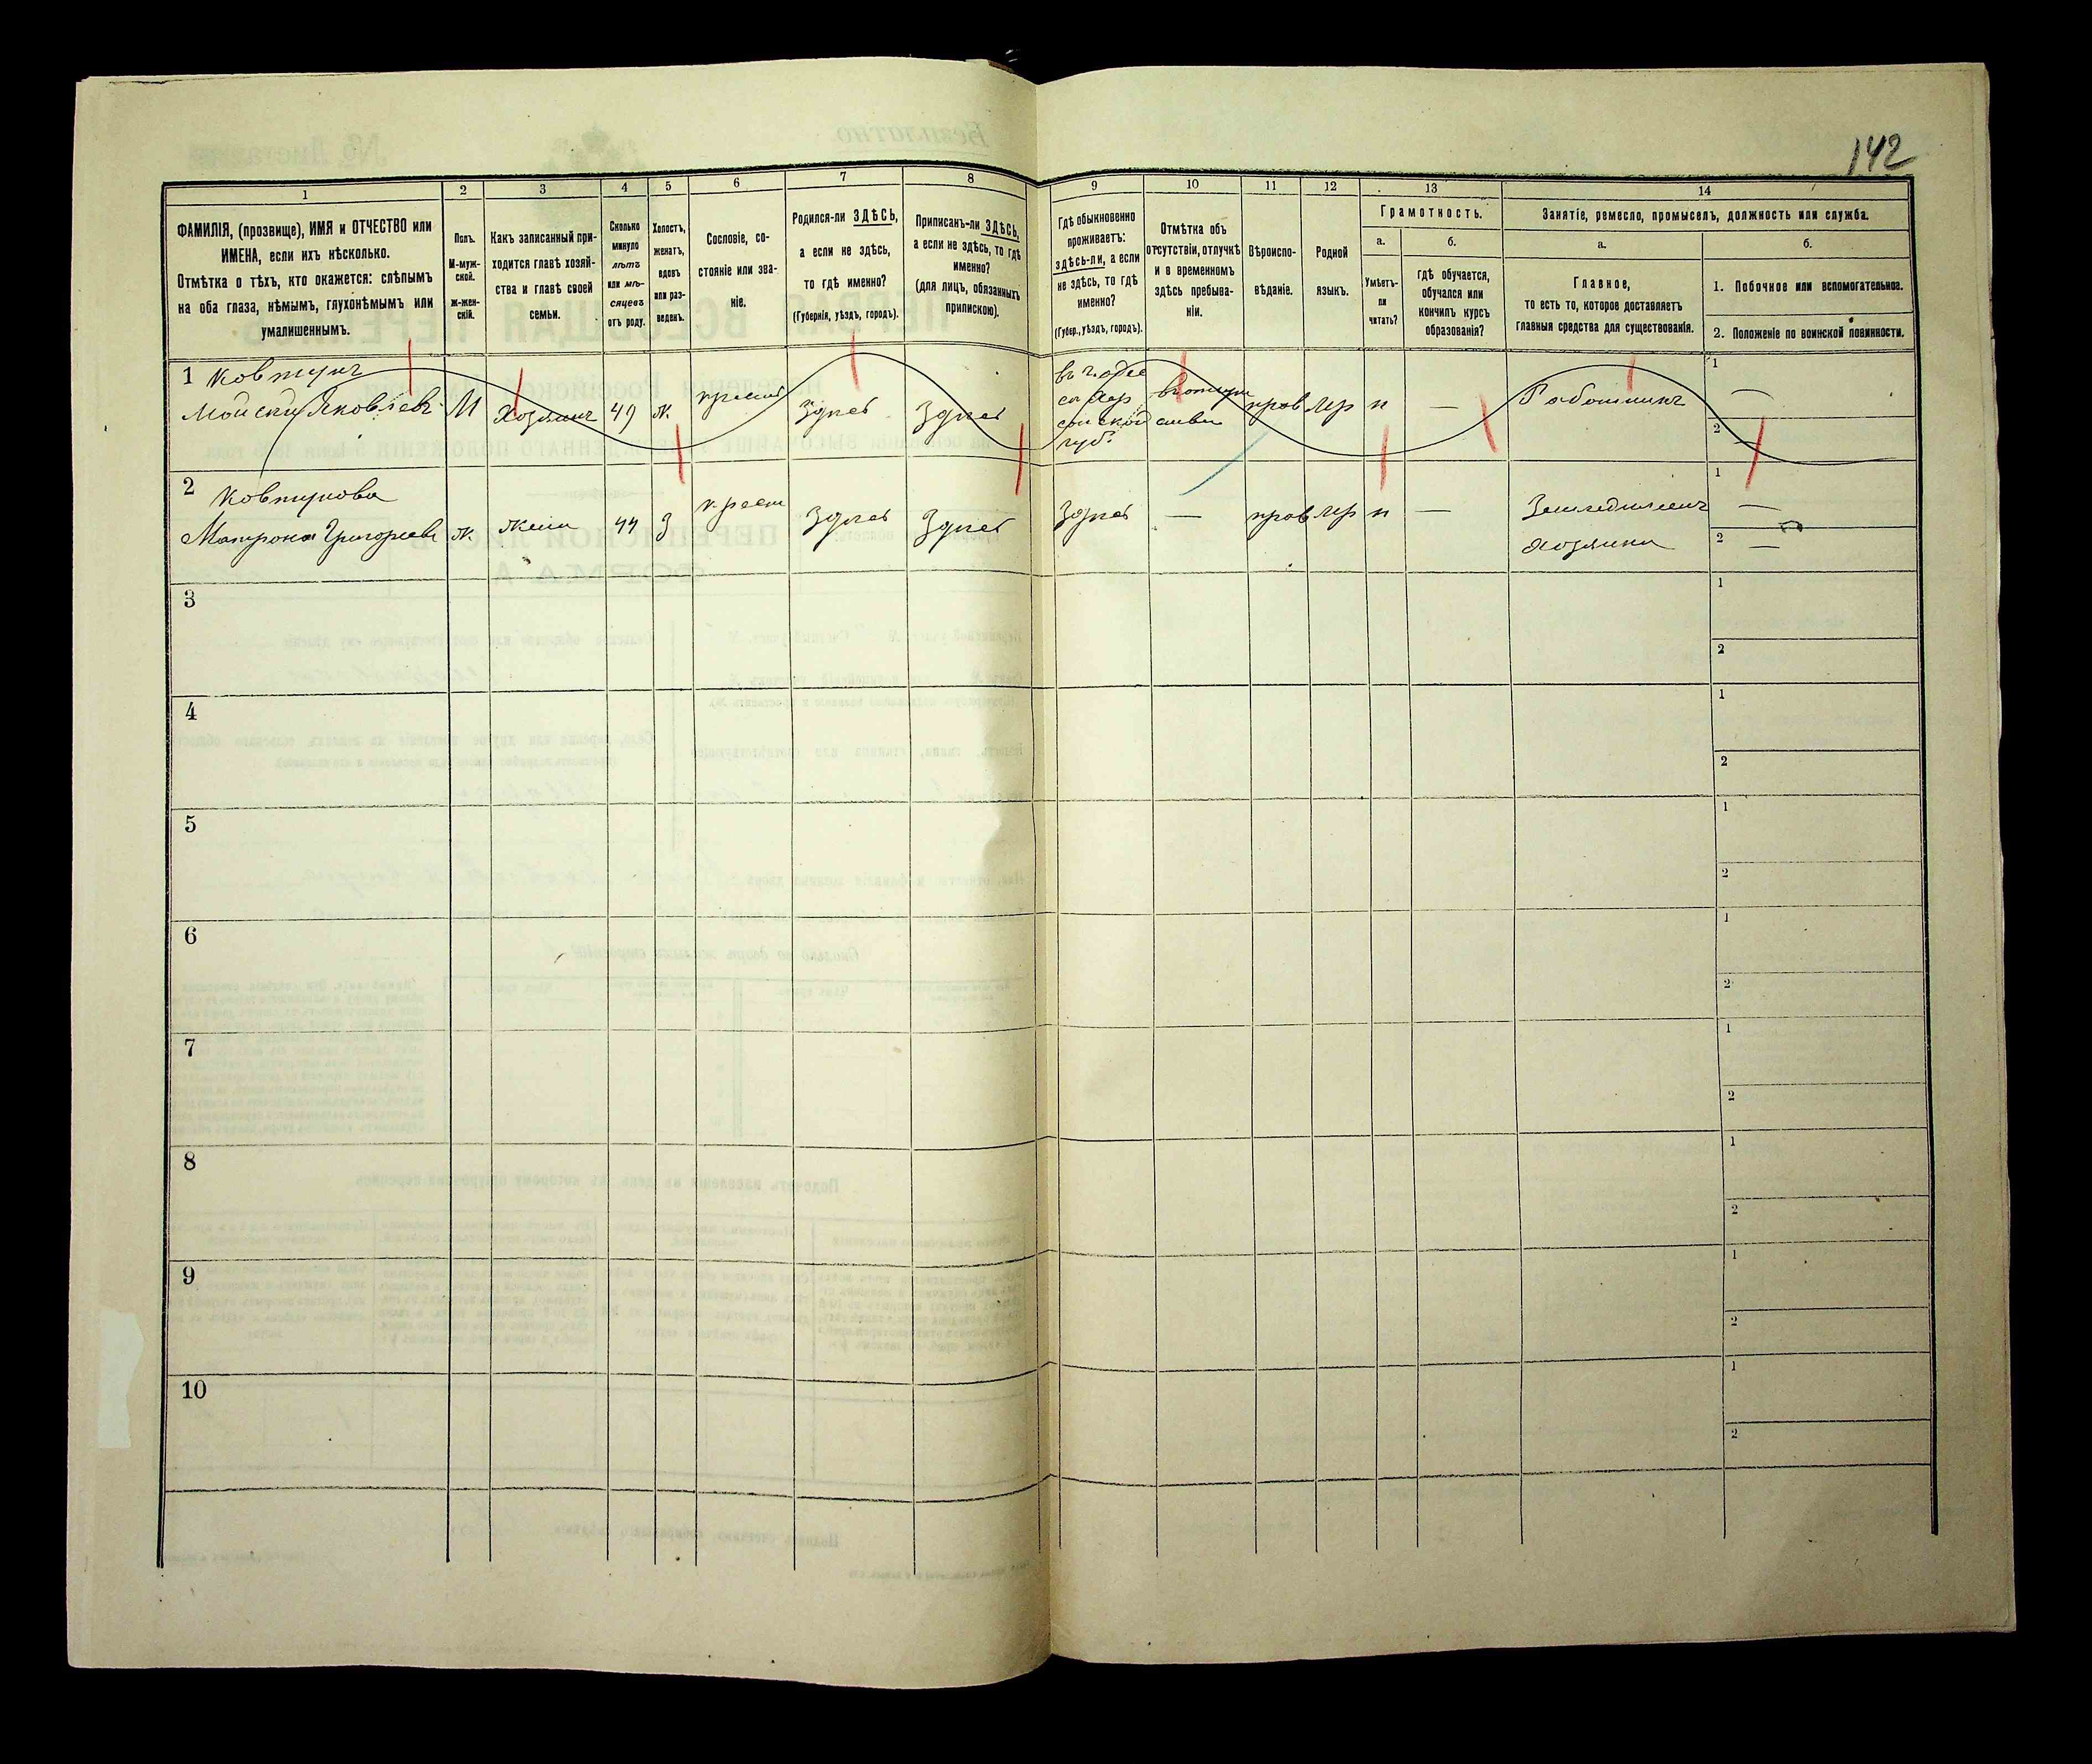 142
1
2
3
4
5
6
7
8
9
10
11
12
13
14
ФАМИЛІЯ, (прозвище), ИМЯ и ОТЧЕСТВО или
ИМЕНА, если ихъ нѣсколько.
Отмѣтка о тѣхъ, кто окажется: слѣпымъ
на оба глаза, нѣмымъ, глухонѣмымъ или
умалишеннымъ.
Полъ.
М-муж-
ской.
Ж-жен-
скій.
Какъ записанный при-
ходится главѣ хозяй-
ства и главѣ своей
семьи.
Сколько
минуло
лѣтъ
или мѣ-
сяцевъ
отъ роду.
Холостъ,
женатъ,
вдовъ
или раз-
веденъ.
Сословіе, со-
стояніе или зва-
ніе.
Родился-ли ЗДѢСЬ,
а если не здѣсь,
то гдѣ именно?
(Губернія, уѣздъ, городъ).
Приписанъ-ли ЗДѢСЬ,
а если не здѣсь, то гдѣ
именно?
(для лицъ, обязанныхъ
припискою).
Гдѣ обыкновенно
проживаетъ:
здѣсь-ли, а если
не здѣсь, то гдѣ
именно?
(Губер., уѣздъ, городъ).
Отмѣтка объ
отсутствіи, отлучкѣ
и в временномъ
здѣсь пребыва-
ніи.
Вѣроиспо-
вѣданіе.
Родной
языкъ.
Грамотность.
а.
Умѣетъ-
ли
читать?
б.
гдѣ обучается,
обучался или
кончилъ курсъ
образованія?
Занятіе, ремесло, промыселъ, должность или служба.
а.
Главное,
то есть то, которое доставляетъ
главныя средства для существованія.
б.
1. Побочное или вспомогательное.
2. Положеніе по воинской повинности.
1 Ковтунъ
Мойсей Яковлевъ М Хозяинъ 49 ж. крест Здѣсь Здѣсь
в г. Одес
са Хер
сонской
губ.
в отлуч
прав Мр н — Работникъ
1 —
2 —
2 Ковтунова
Матрона Григорьева ж. жена 44 З крест Здѣсь Здѣсь Здѣсь — прав Мр н — Земледѣлецъ
хозяйка
1 —
2 —
3
1
2
4
1
2
5
1
2
6
1
2
7
1
2
8
1
2
9
1
2
10
1
2